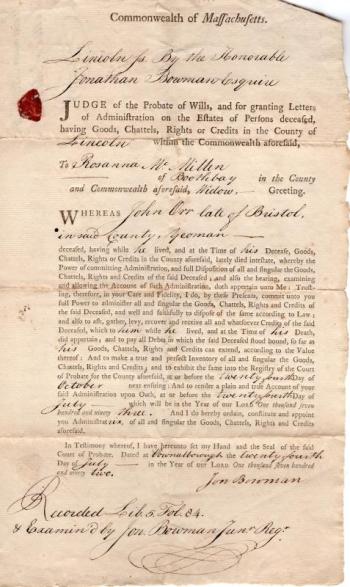 Commonwealth of Massachusetts.
Lincoln ss. By the Honorable
Jonathan Bowman Esquire
JUDGE of the Probate of Wills, and for granting Letters
of Administration on the Estates of Persons deceased,
having Goods, Chattels, Rights or Credits in the County of
Lincoln within the Commonwealth aforesaid,
To Rosanna McMillen
of Boothbay in the County
and Commonwealth aforesaid, Widow. Greeting.
WHEREAS John Orr late of Bristol,
in said County, Yeoman
deceased, having while he lived, and at the Time of his Decease, Goods,
Chattels, Rights or Credits in the County aforesaid, lately died intestate, whereby the
Power of committing Administration, and full Disposition of all and singular the Goods,
Chattels, Rights and Credits of the said Deceased; and also the hearing, examining
and allowing the Account of such Administration, doth appertain unto Me: Trust-
ing, therefore, in your Care and Fidelity, I do, by these Presents, commit unto you
full Power to administer all and singular the Goods, Chattels, Rights and Credits of
the said Deceased, and well and faithfully to dispose of the same according to Law;
and also to ask, gather, levy, recover and receive all and whatsoever Credits of the said
Deceased, which to him while he lived, and at the Time of his Death,
did appertain; and to pay all Debts in which the said Deceased stood bound, so far as
his Goods, Chattels, Rights and Credits can extend, according to the Value
thereof: And to make a true and perfect Inventory of all and singular the Goods,
Chattels, Rights and Credits; and to exhibit the same into the Registry of the Court
of Probate for the County aforesaid, at or before the Twenty fourth Day of
October next ensuing: And to render a plain and true Account of your
said Administration upon Oath, at or before the Twenty fourth Day of
July which will be in the Year of our LORD One thousand seven
hundred and ninety three. And I do hereby ordain, constitute and appoint
you Administratrix, of all and singular the Goods, Chattels, Rights and Credits
aforesaid.
In Testimony whereof, I have hereunto set my Hand and the Seal of the said
Court of Probate. Dated at Pownalborough the twenty fourth
Day of July in the Year of our LORD One thousand seven hundred
and ninety two.
Jon Bowman
Recorded Lib. 5. Fol. 84.
& Examin'd by Jon. Bowman Junr. Regr.